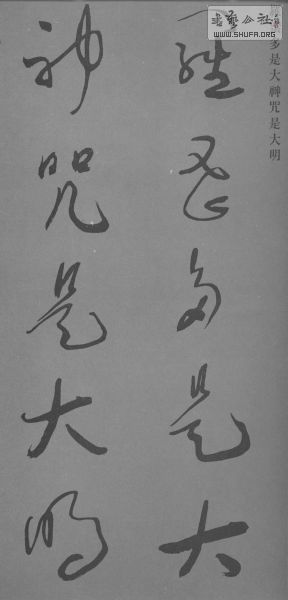 羅蜜多是大
神咒是大明
多是大神咒是大明
書藝公社
WWW.SHUFA.ORG